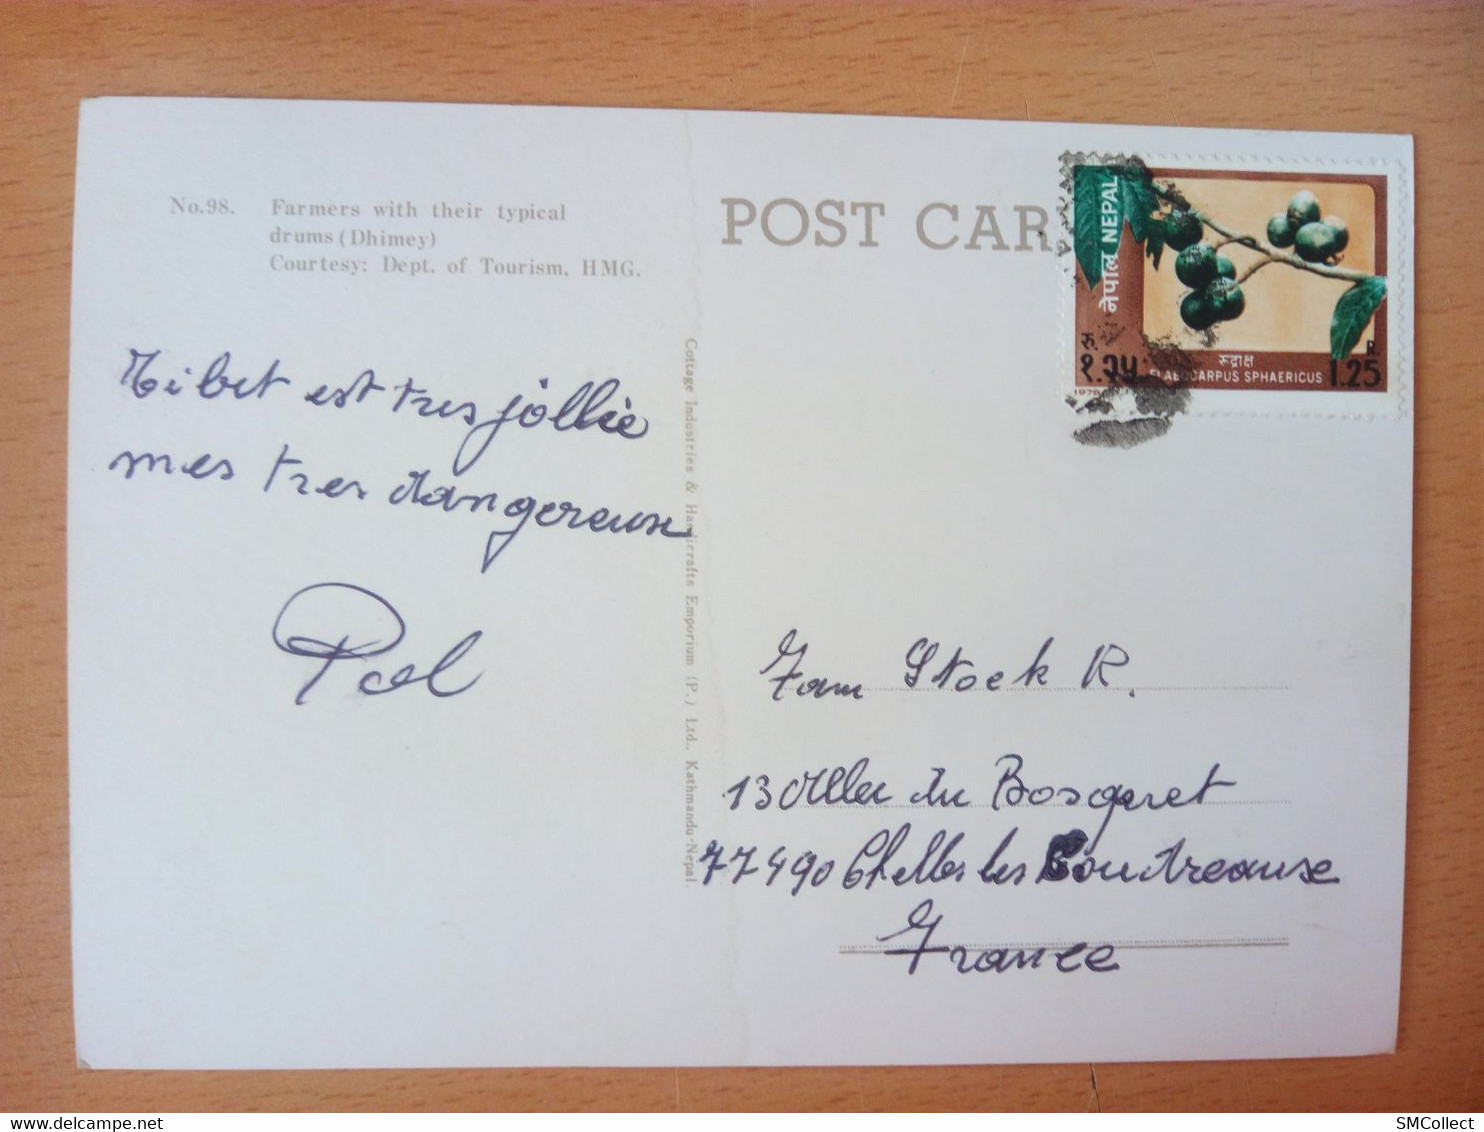 No.98. Farmers with their typical
drums (Dhimey)
Courtesy: Dept. of Tourism, HMG.
Tibet est tres jollie
mes tres dangereuse
Pol
Cottage Industries & Handicrafts Emporium (P.) Ltd., Kathmandu-Nepal
POST CAR
नेपाल NEPAL
रु.
१.२५
रूद्राक्ष
ELAEOCARPUS SPHAERICUS
R.
1.25
1978
Fam Stock R.
13 Allee du Bosgeret
77490 Chelles les Coudreause
France
SMCollect